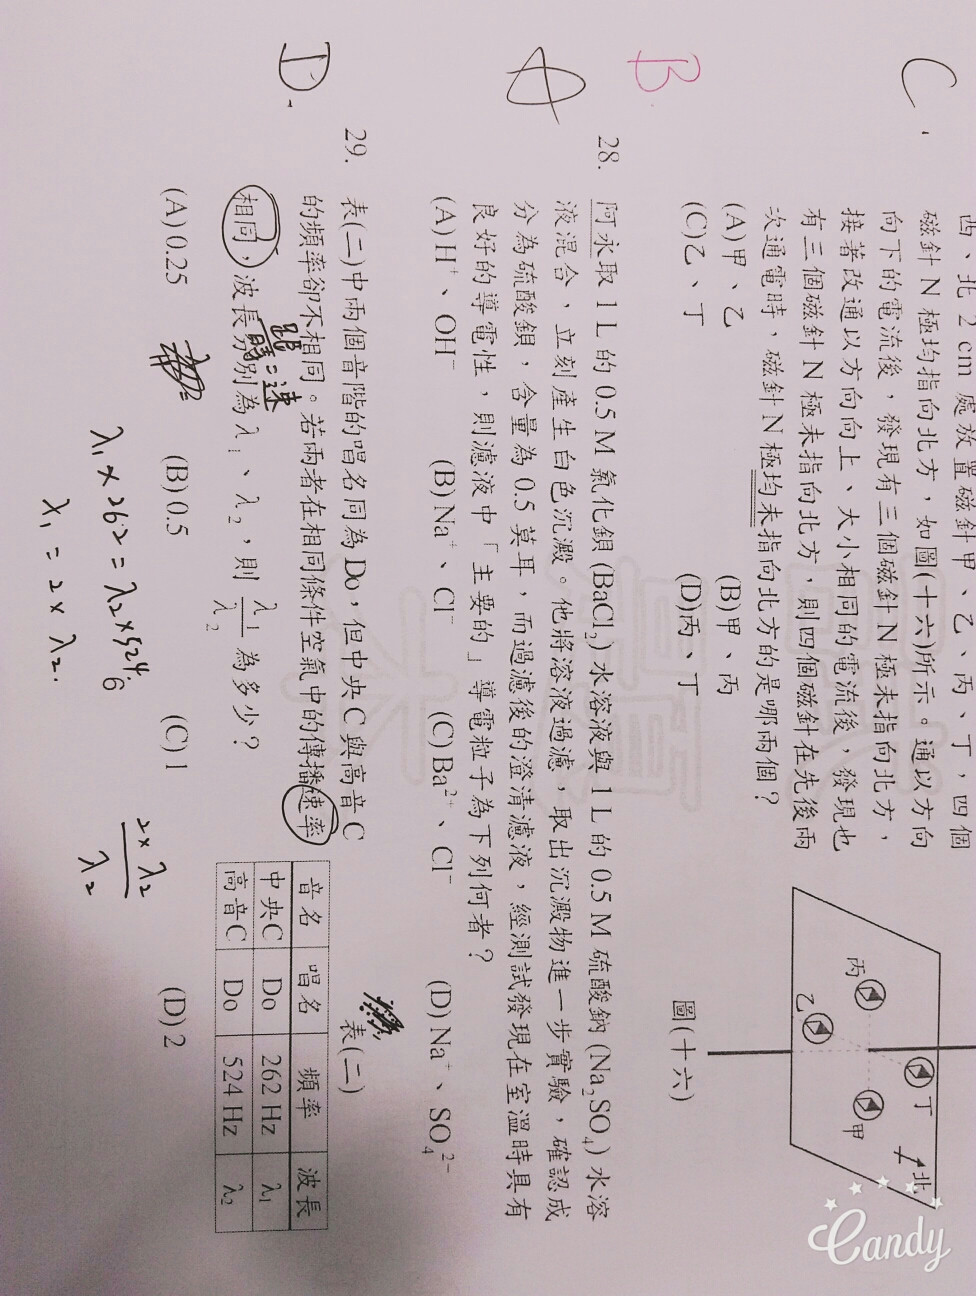 C.
西、北 2 cm 處放置磁針甲、乙、丙、丁,四個
磁針 N 極均指向北方,如圖(十六)所示。通以方向
向下的電流後,發現有三個磁針 N 極未指向北方,
接著改通以方向向上、大小相同的電流後,發現也
有三個磁針 N 極未指向北方,則四個磁針在先後兩
次通電時,磁針 N 極均未指向北方的是哪兩個?
(A)甲、乙 (B)甲、丙
(C)乙、丁 (D)丙、丁
丙
乙
丁
甲
北
圖(十六)
B.
A
28. 阿永取 1 L 的 0.5 M 氯化鋇 (BaCl₂) 水溶液與 1 L 的 0.5 M 硫酸鈉 (Na₂SO₄) 水溶
液混合,立刻產生白色沉澱。他將溶液過濾,取出沉澱物進一步實驗,確認成
分為硫酸鋇,含量為 0.5 莫耳,而過濾後的澄清濾液,經測試發現在室溫時具有
良好的導電性,則濾液中「主要的」導電粒子為下列何者?
(A) H⁺、OH⁻ (B) Na⁺、Cl⁻ (C) Ba²⁺、Cl⁻ (D) Na⁺、SO₄²⁻
D.
29. 表(二)中兩個音階的唱名同為 Do,但中央 C 與高音 C
的頻率卻不相同。若兩者在相同條件空氣中的傳播速率
相同,波長分別為 λ₁、λ₂,則 λ₁/λ₂ 為多少?
(A) 0.25 (B) 0.5 (C) 1 (D) 2
表(二)
音名 唱名 頻率 波長
中央C Do 262 Hz λ₁
高音C Do 524 Hz λ₂
距/時=速
λ₁ × 262 = λ₂ × 524
λ₁ = 2 × λ₂.
2 × λ₂
λ₂
Candy